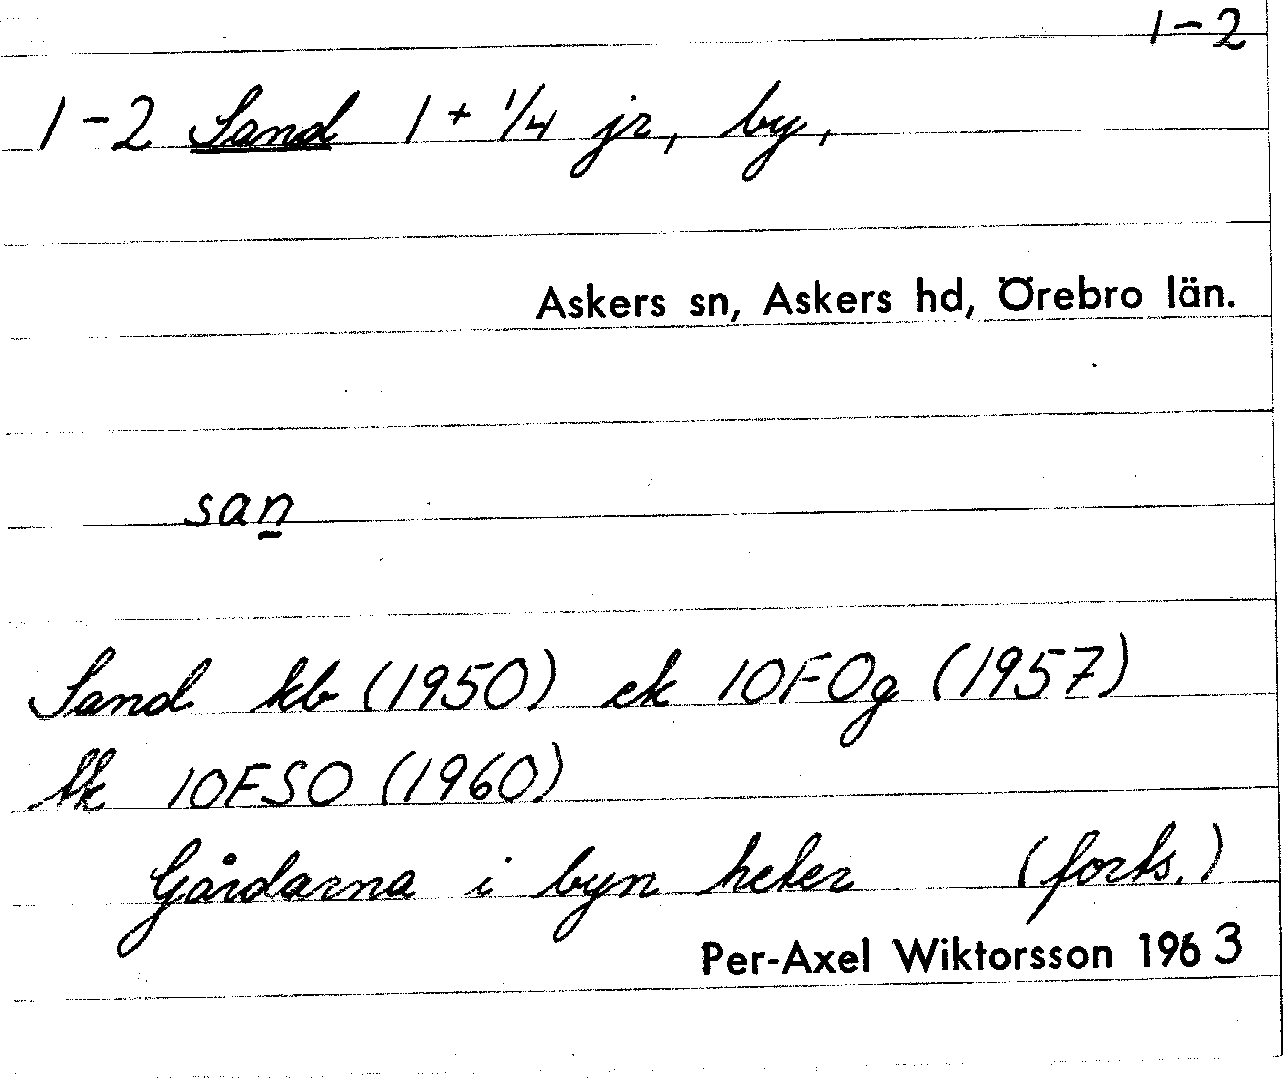 1-2
1-2 Sand 1 + 1/4 jr, by,
Askers sn, Askers hd, Örebro län.
san
Sand kb (1950) ek 10FOg (1957)
tk 10FSO (1960)
Gårdarna i byn heter (forts.)
Per-Axel Wiktorsson 1963